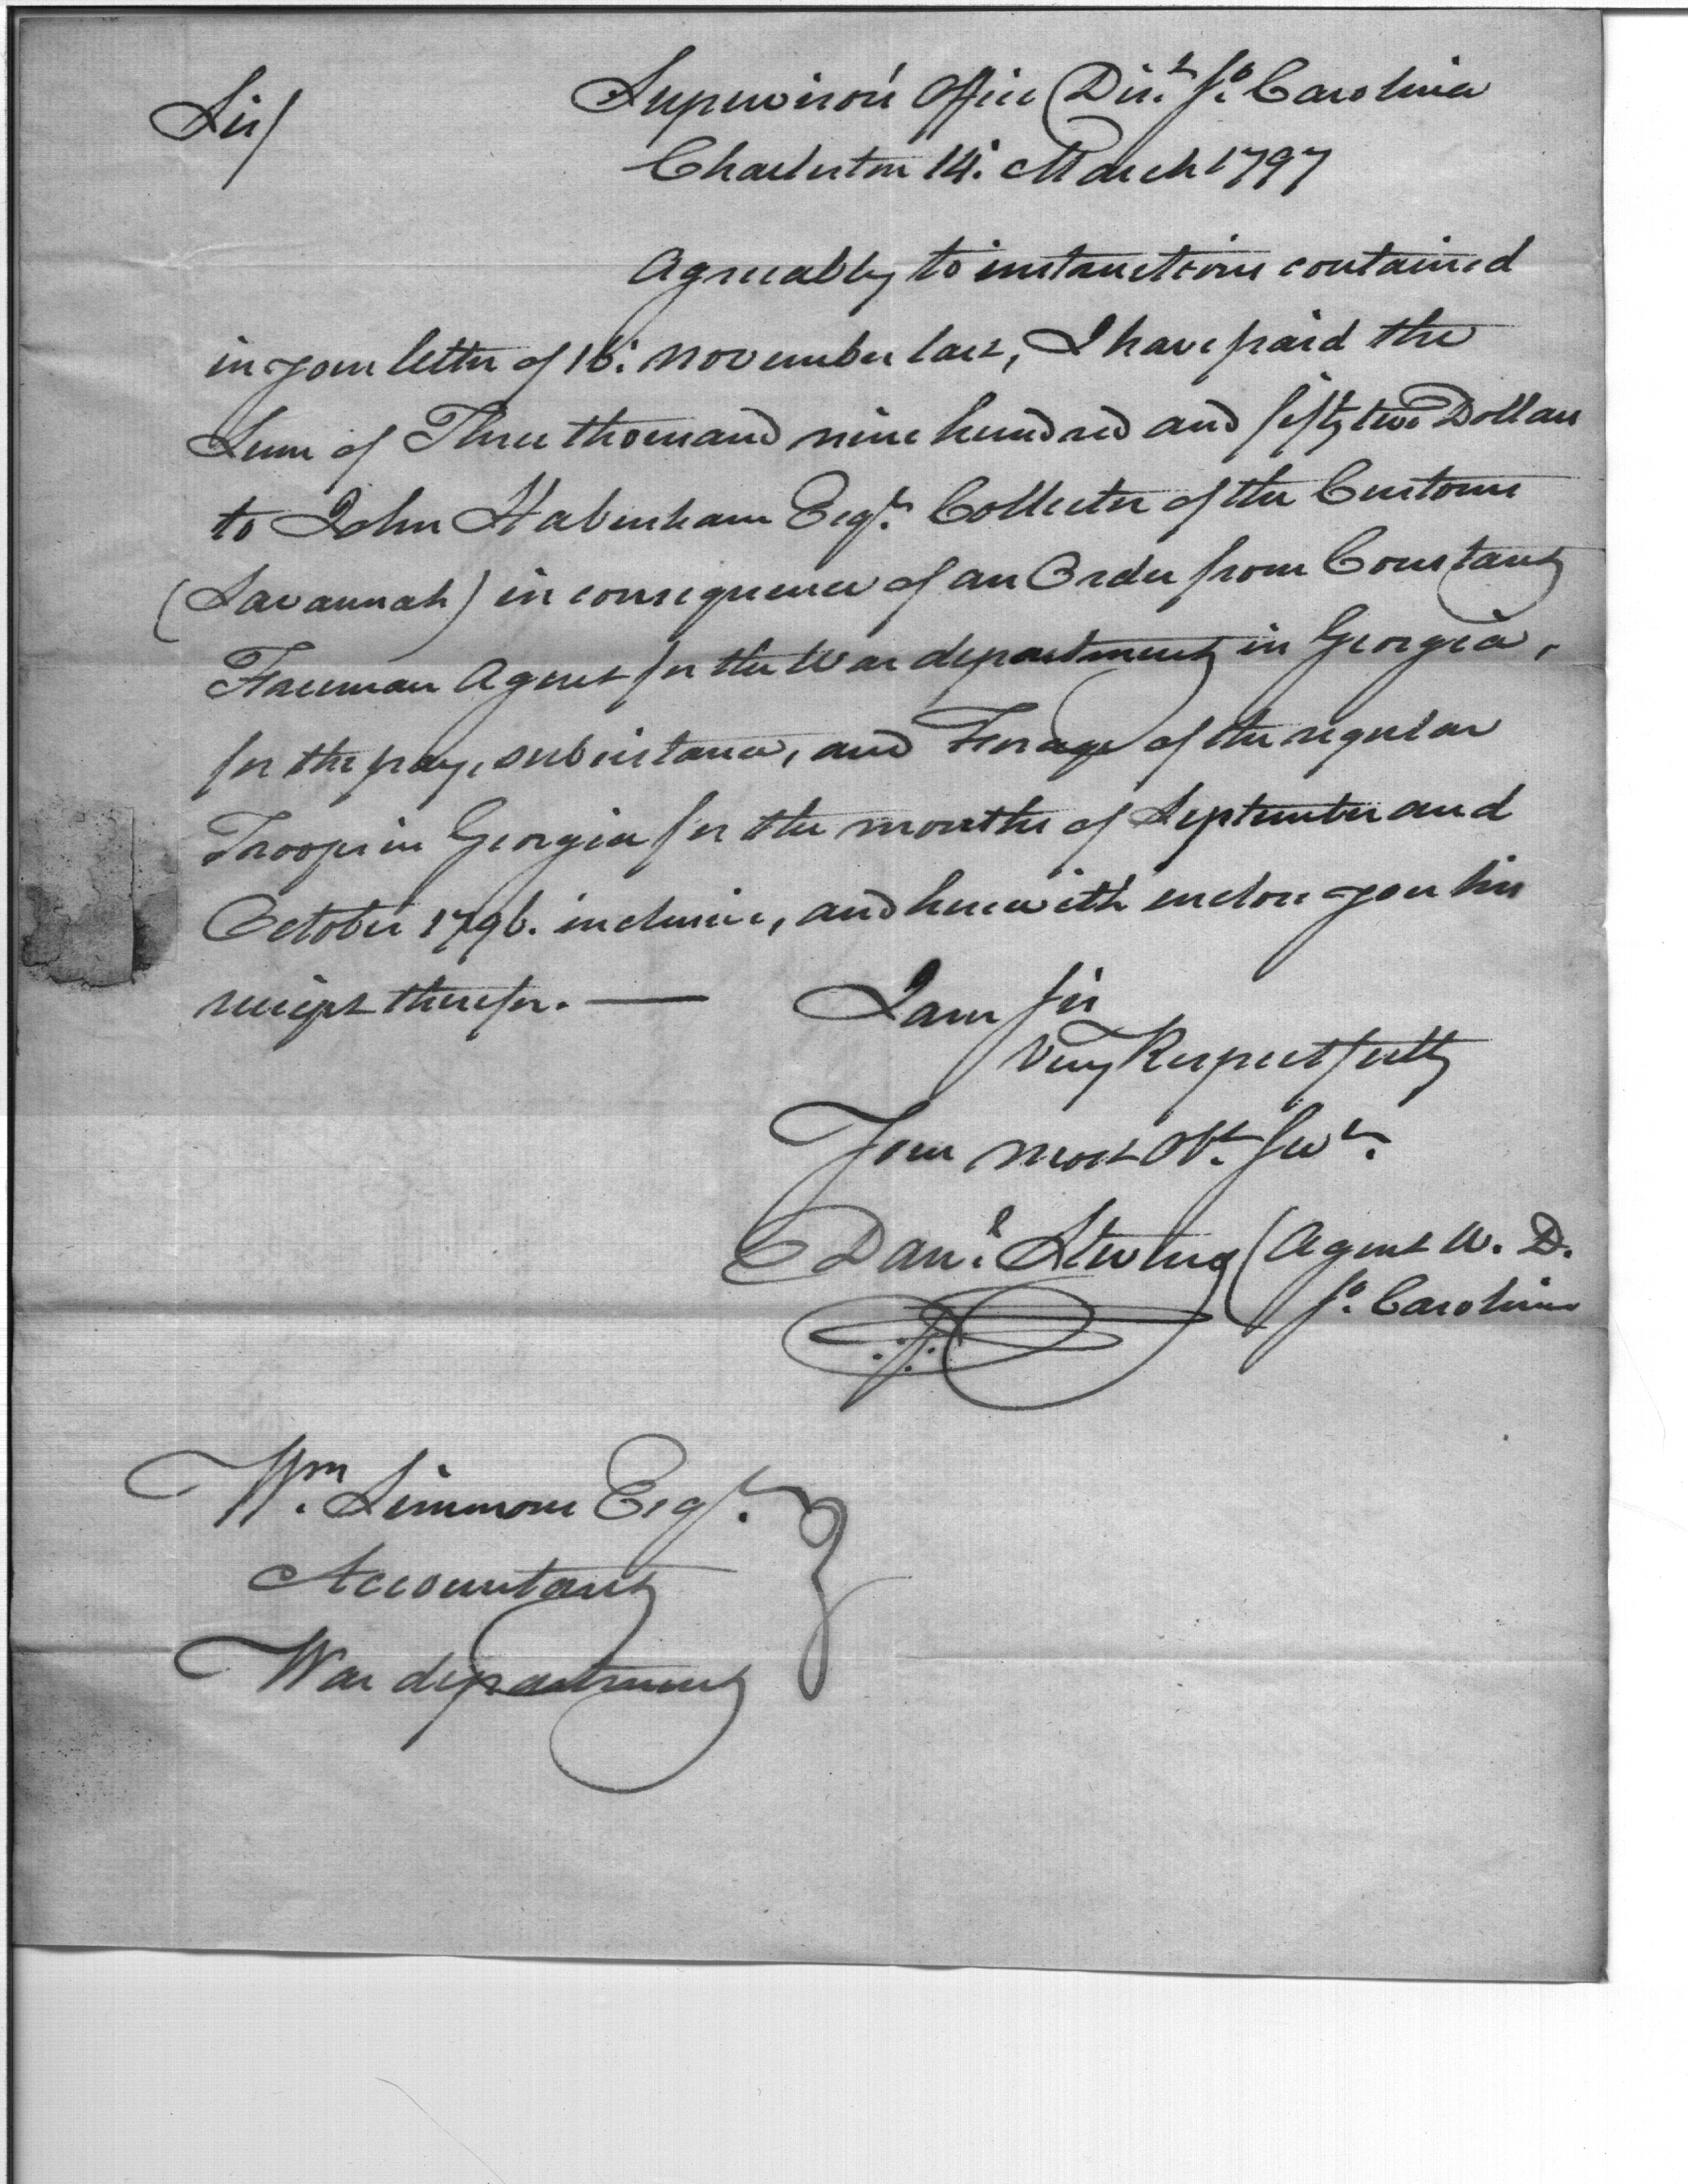 Sir/
Supervisors Office Dist. So. Carolina
Charleston 14. March 1797
Agreeably to instructions contained
in your letter of 16. November last, I have paid the
Sum of Three thousand nine hundred and fifty two Dollars
to John Habersham Esqr. Collector of the Customs
(Savannah) in consequence of an Order from Constant
Freeman Agent for the War department in Georgia,
for the pay, subsistance, and Forage of the regular
Troops in Georgia for the months of September and
October 1796. inclusive, and herewith enclose you his
receipt therefor. —
I am Sir
Very Respectfully
Your most Obt. Servt.
Danl. Stevens (Agent W. D.
So. Carolina
Wm. Simmons Esqr.
Accountant
War department